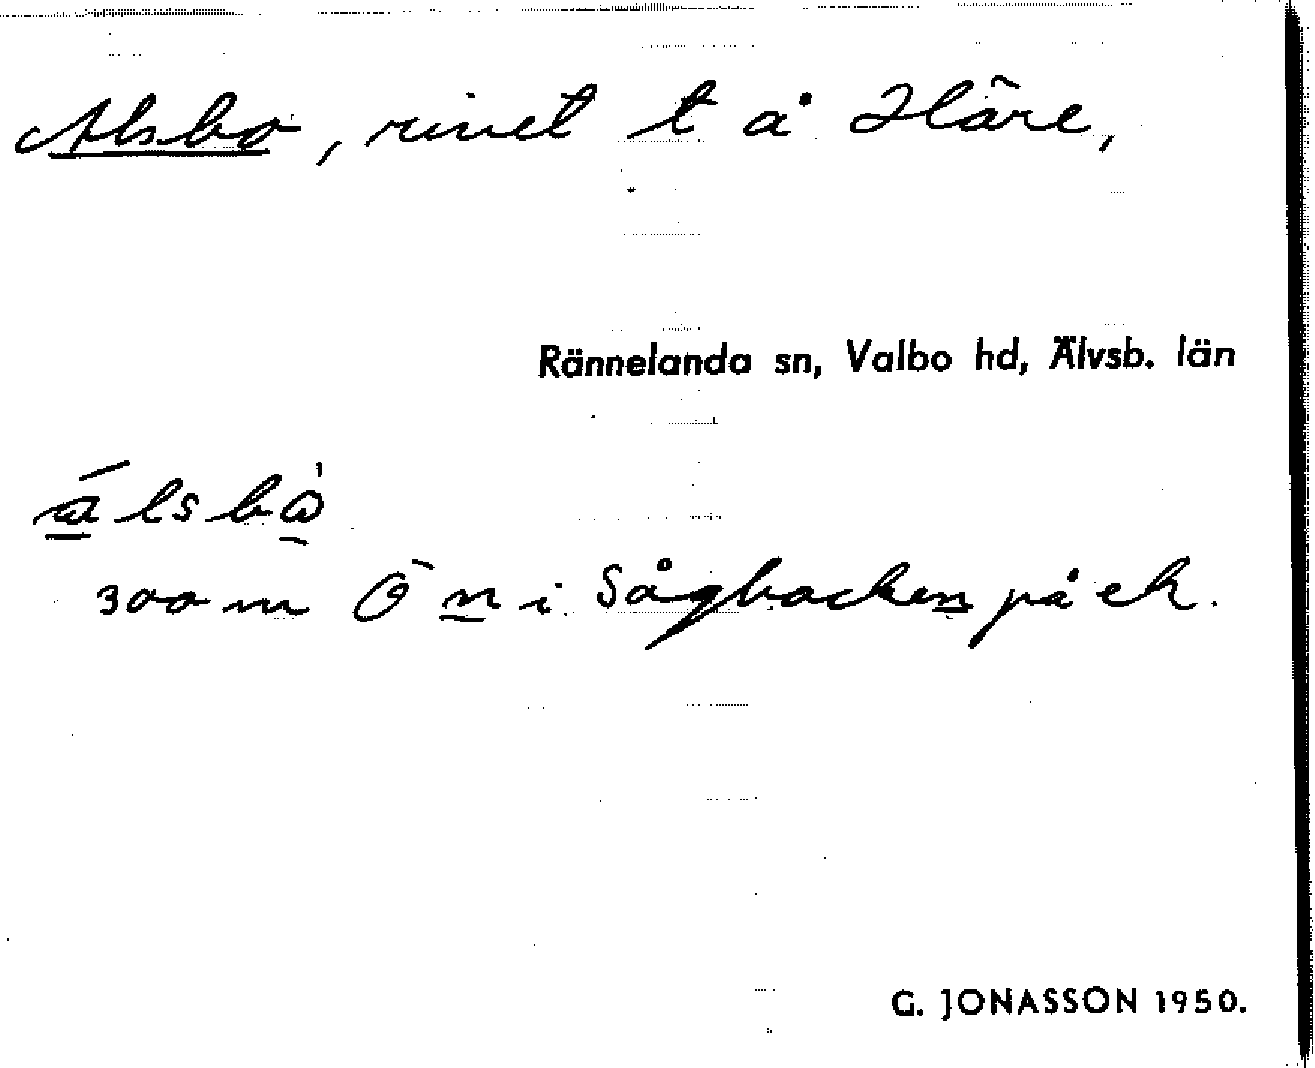 Alsbo, rivet t å Häre,
Rännelanda sn, Valbo hd, Älvsb. län
300 m Ö n i Sågbacken på ek.
G. JONASSON 1950.